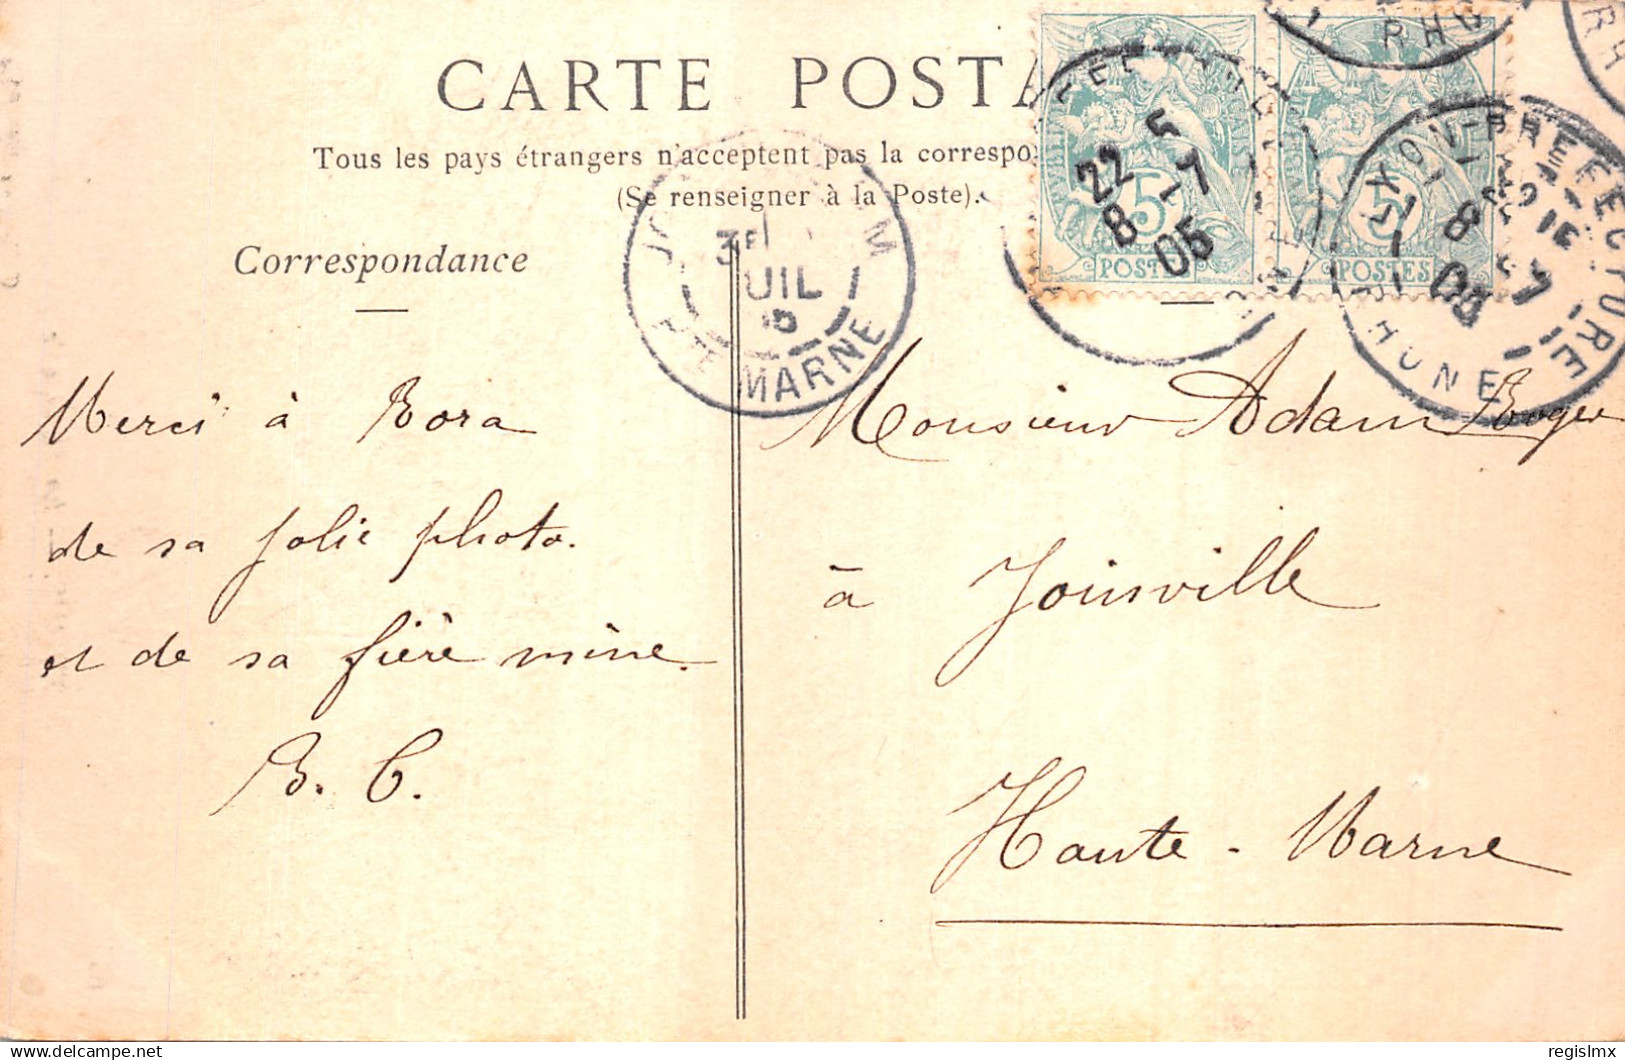 CARTE POSTA
Tous les pays étrangers n'acceptent pas la correspo
(Se renseigner à la Poste).
Correspondance
Merci à Rora
de sa jolie photo.
et de sa fière mine.
B. C.
Monsieur Adam Roger
à Joinville
Haute-Marne
JO M
UIL
HTE MARNE
22 7
8 05
5
POSTES
5
POSTES
PREFECTURE
RHONE
regislmx